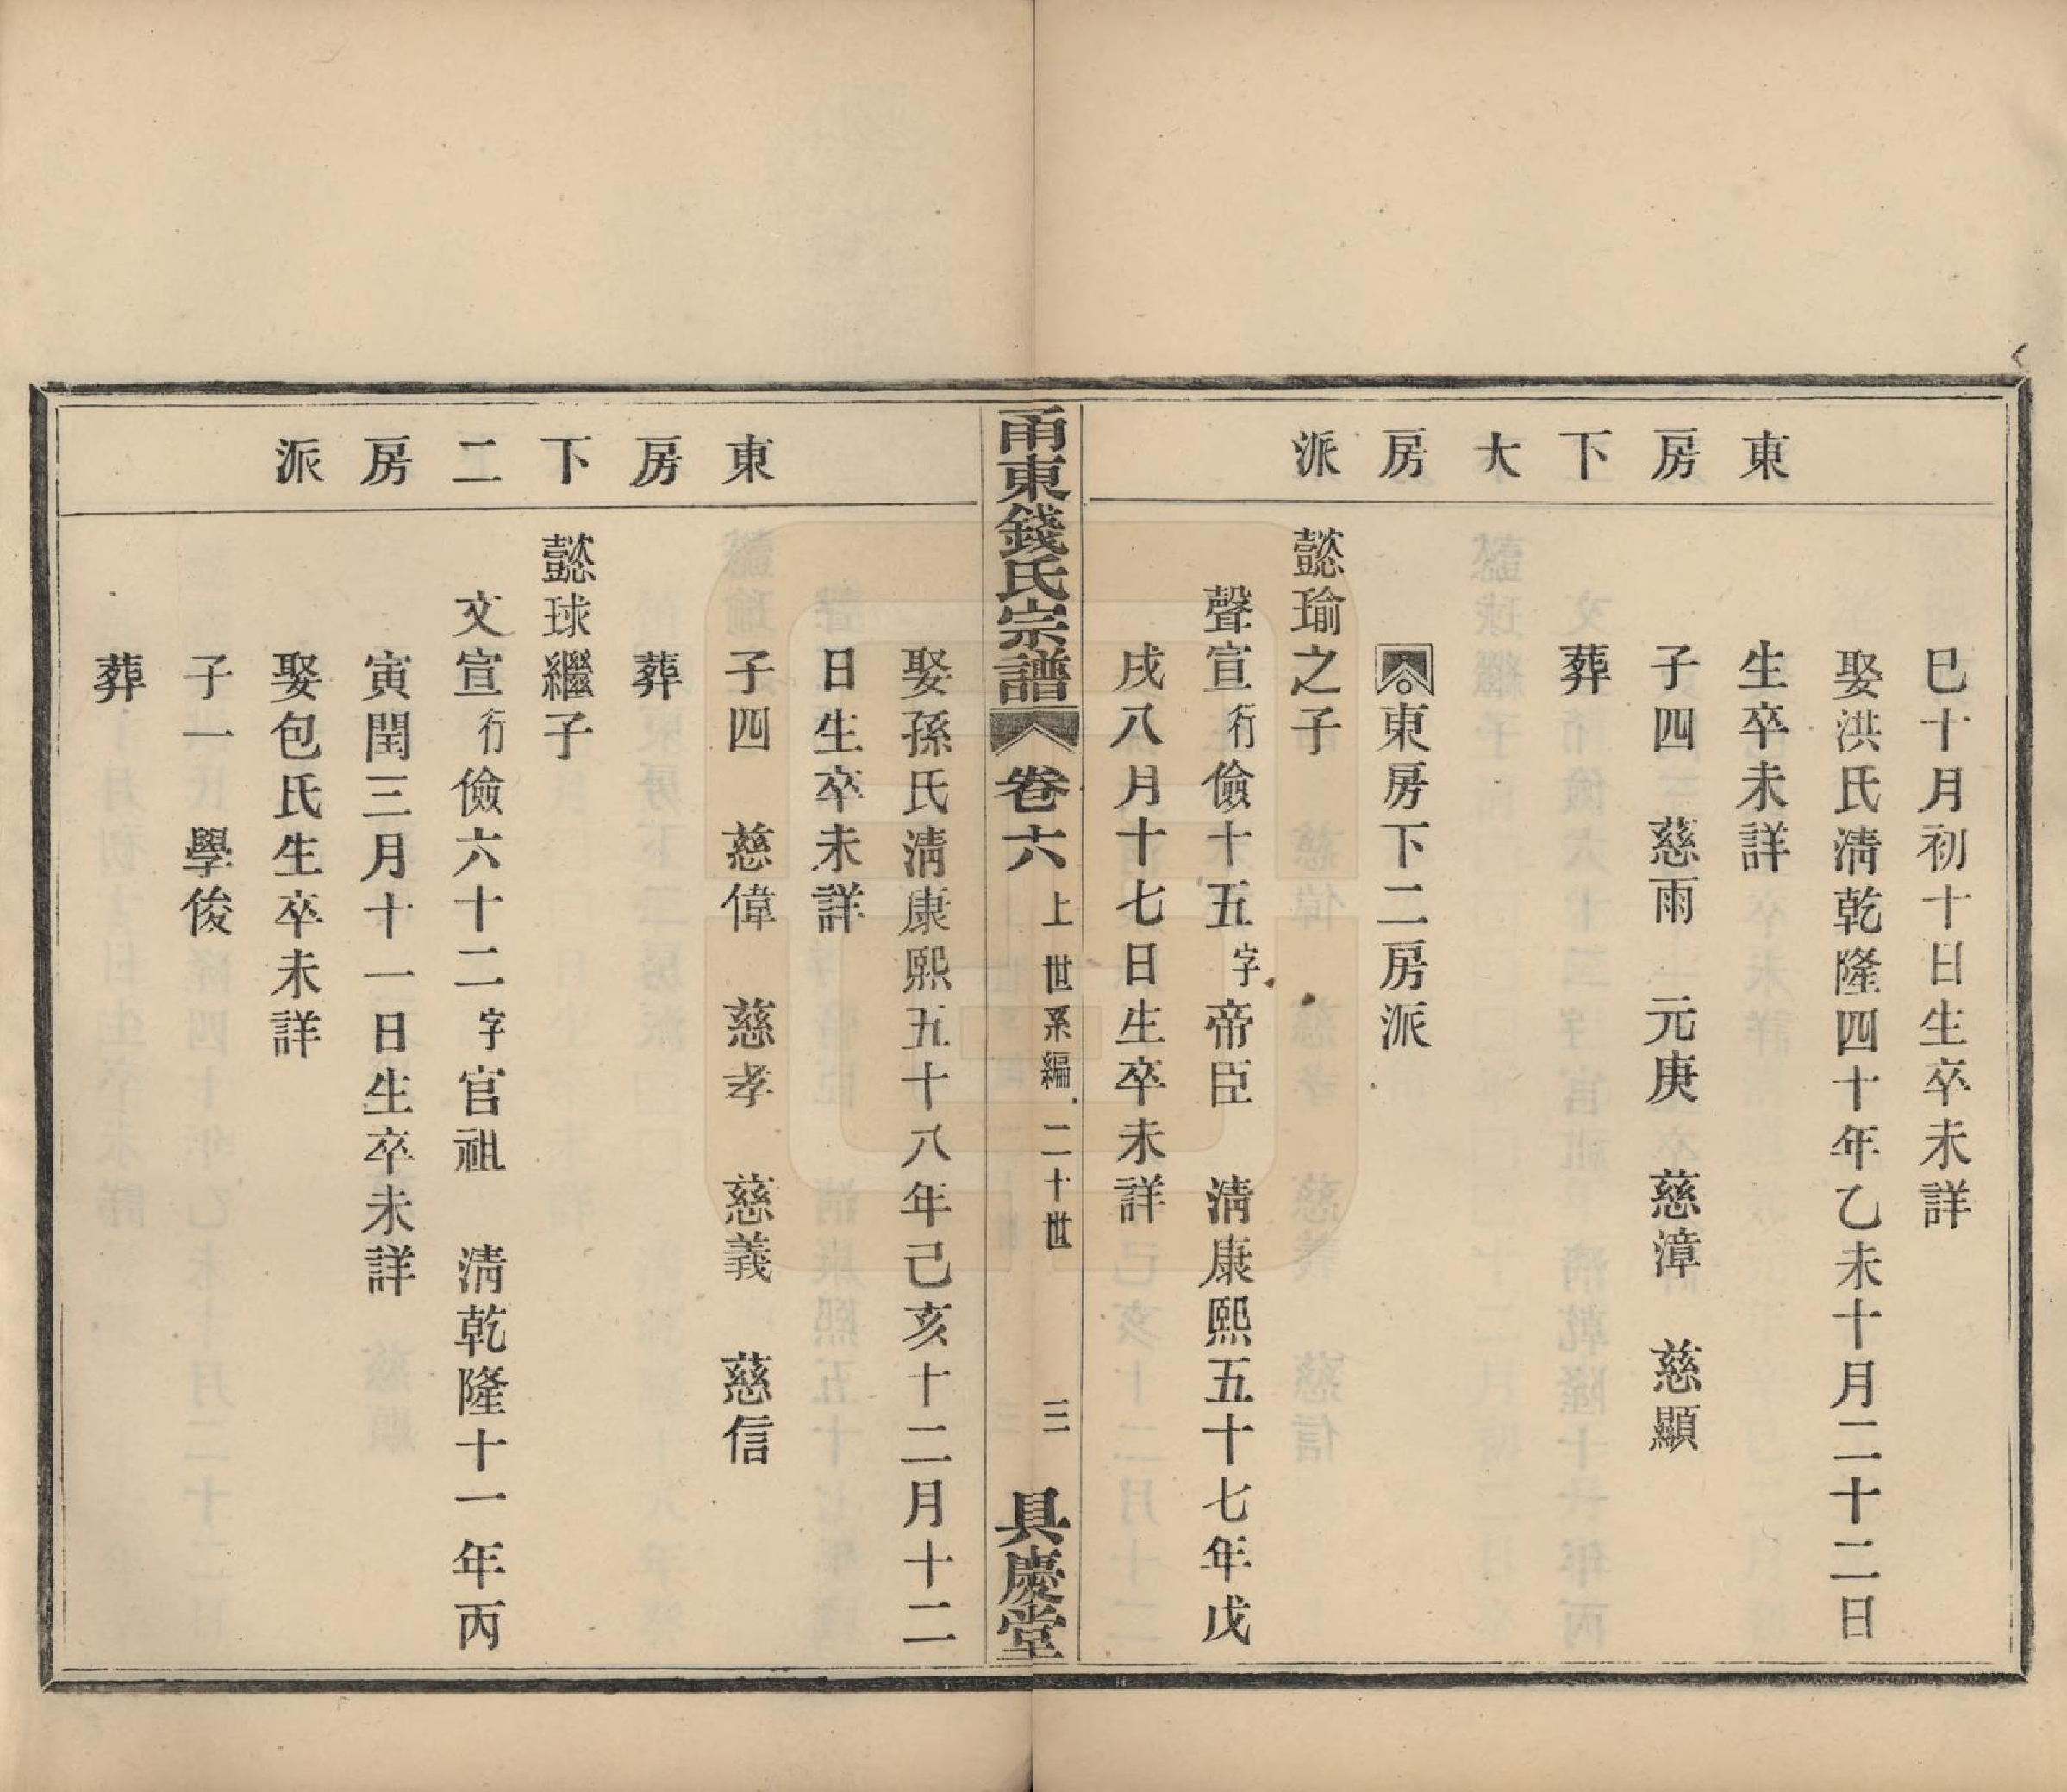 東房下大房派
巳十月初十日生卒未詳
娶洪氏清乾隆四十年乙未十月二十二日
生卒未詳
子四　慈雨　元庚　慈漳　慈顯
葬
東房下二房派
懿瑜之子
聲宣行儉十五字帝臣　清康熙五十七年戊
戌八月十七日生卒未詳
甬東錢氏宗譜　卷六　上世系編　二十世　三　具慶堂
東房下二房派
娶孫氏清康熙五十八年己亥十二月十二
日生卒未詳
子四　慈偉　慈孝　慈義　慈信
葬
懿球繼子
文宣行儉六十二字官祖　清乾隆十一年丙
寅閏三月十一日生卒未詳
娶包氏生卒未詳
子一　學俊
葬